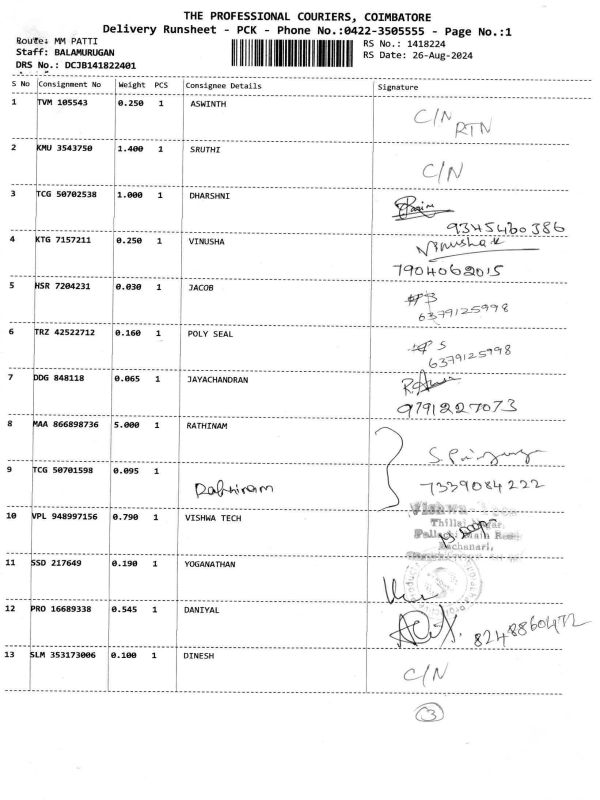 THE PROFESSIONAL COURIERS, COIMBATORE
Delivery Runsheet - PCK - Phone No.:0422-3505555 - Page No.:1
Route: MM PATTI
RS No.: 1418224
Staff: BALAMURUGAN
RS Date: 26-Aug-2024
DRS No.: DCJB141822401
S No Consignment No Weight PCS Consignee Details Signature
1 TVM 105543 0.250 1 ASWINTH C/N RTN
2 KMU 3543750 1.400 1 SRUTHI C/N
3 TCG 50702538 1.000 1 DHARSHNI
9345460386
4 KTG 7157211 0.250 1 VINUSHA Vinusha k
7904062015
5 HSR 7204231 0.030 1 JACOB
6379125998
6 TRZ 42522712 0.160 1 POLY SEAL
6379125998
7 DDG 848118 0.065 1 JAYACHANDRAN
9791227073
8 MAA 866898736 5.000 1 RATHINAM
9 TCG 50701598 0.095 1
Rathinam 7339084222
10 VPL 948997156 0.790 1 VISHWA TECH
11 SSD 217649 0.190 1 YOGANATHAN
12 PRO 16689338 0.545 1 DANIYAL
8248860472
13 SLM 353173006 0.100 1 DINESH C/N
3